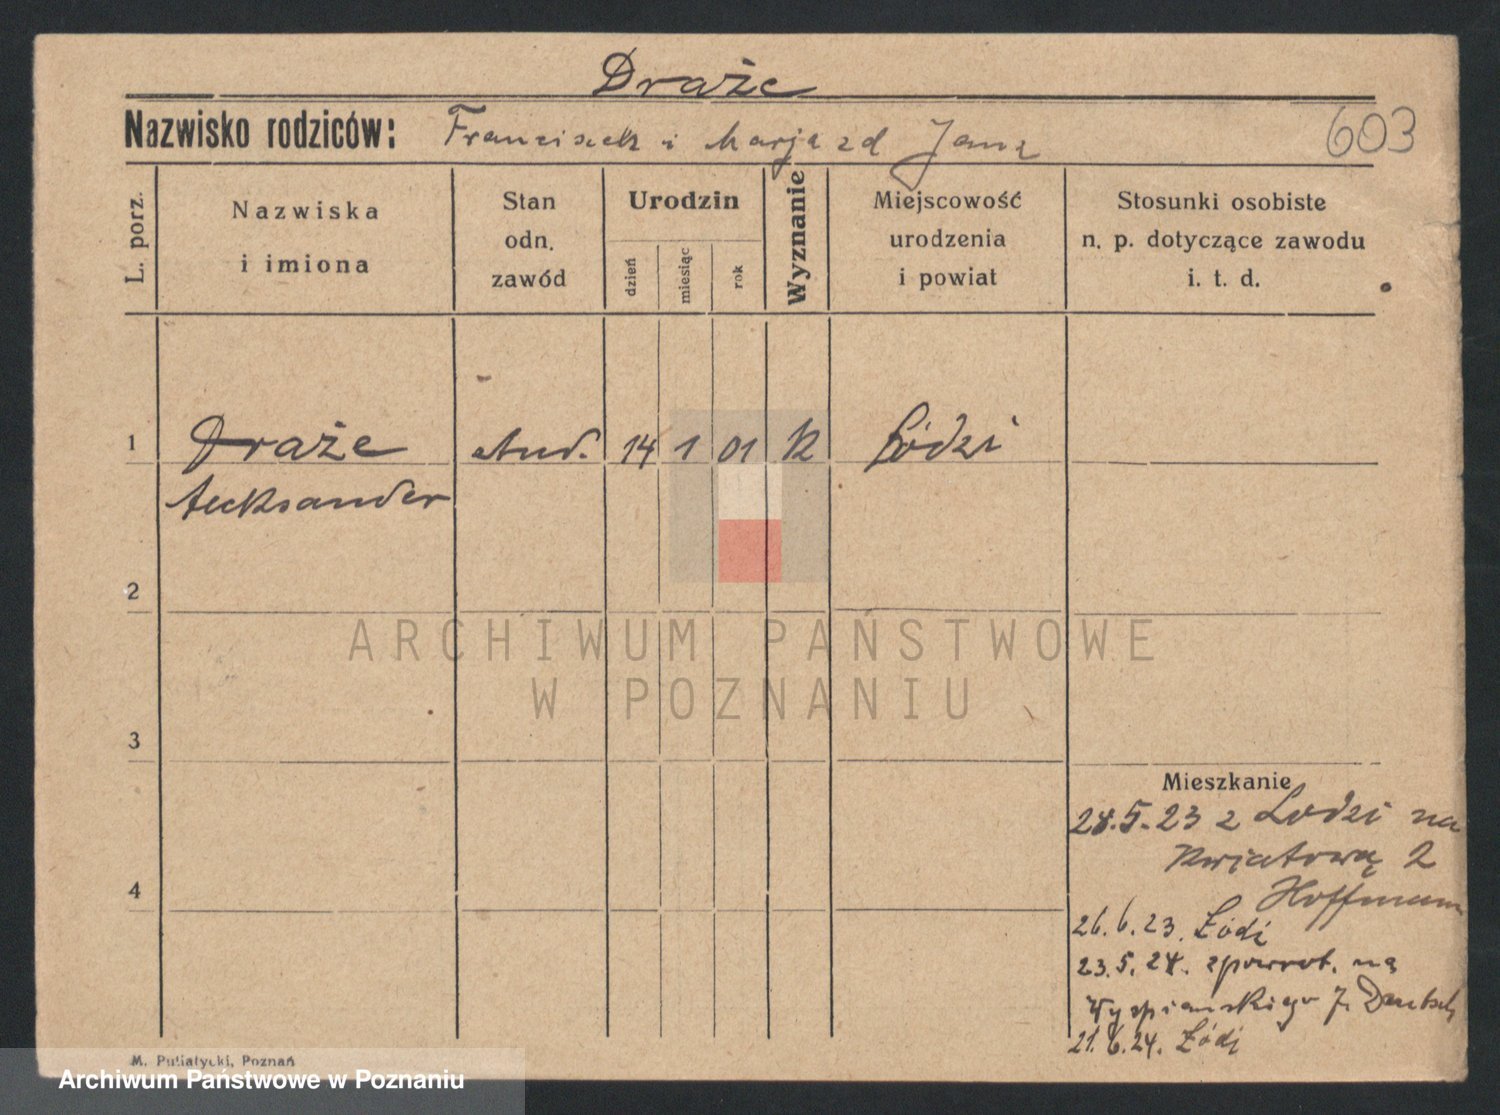 Draże
Nazwisko rodziców: Franciszek i Marja zd Janą
603
L. porz.
Nazwiska
i imiona
Stan
odn.
zawód
Urodzin
dzień
miesiąc
rok
Wyznanie
Miejscowość
urodzenia
i powiat
Stosunki osobiste
n. p. dotyczące zawodu
i. t. d.
1 Draże stud. 14 1 01 K Łódzi
Aleksander
2
3
4
Mieszkanie
24.5.23 z Lodzi na
Kwiatową 2
Hoffmann
26.6.23. Łódź
23.5.24. zpowrot. na
Wyspiańskiego Deutsch
21.6.24. Łódź
M. Putiatycki, Poznań
ARCHIWUM PAŃSTWOWE
W POZNANIU
Archiwum Państwowe w Poznaniu